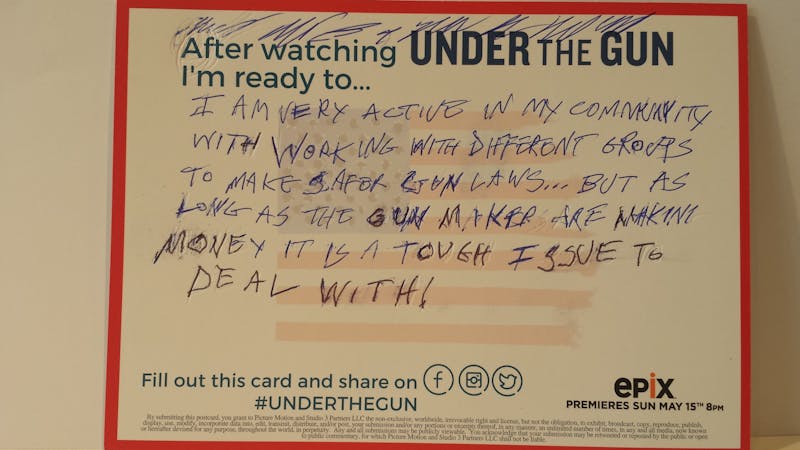 After watching UNDER THE GUN
I'm ready to...
I AM VERY ACTIVE IN MY COMMUNITY
WITH WORKING WITH DIFFERENT GROUPS
TO MAKE SAFOR GUN LAWS... BUT AS
LONG AS THE GUN MAKER ARE MAKING
MONEY IT IS A TOUGH ISSUE TO
DEAL WITH!
Fill out this card and share on
#UNDERTHEGUN
epix
PREMIERES SUN MAY 15TH 8PM
By submitting this postcard, you grant to Picture Motion and Studio 3 Partners LLC the non-exclusive, worldwide, irrevocable right and license, but not the obligation, to exhibit, broadcast, copy, reproduce, publish,
display, use, modify, incorporate data into, edit, transmit, distribute, and/or post, your submission and/or any portions or excerpts thereof, in any manner, an unlimited number of times, in any and all media, now known
or hereafter devised for any purpose, throughout the world, in perpetuity. Any and all submissions may be publicly viewable. You acknowledge that your submission may be rebroadcast or reposted by the public or open
to public commentary, for which Picture Motion and Studio 3 Partners LLC shall not be liable.